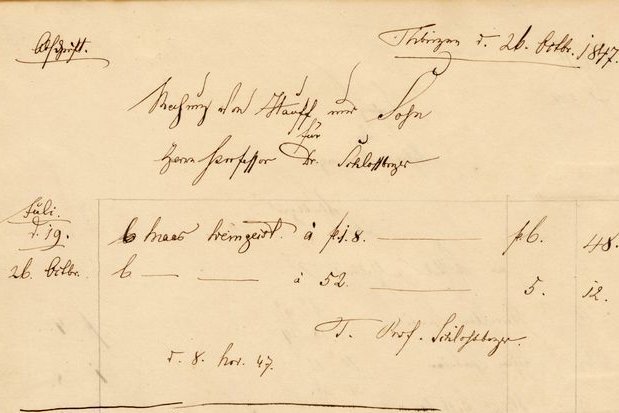 Abschrift.
Tübingen d. 26. Octbr. 1847.
Rechnung von Hauff und Sohn
für
Herrn Professor Dr. Schlossberger
Juli.
d. 19. 6 Maas Weingeist. à f 1. 8. — f 6. 48.
26. Octbr. 6 — — à 52. — 5. 12.
T. Prof. Schlossberger.
d. 8. Nov. 47.